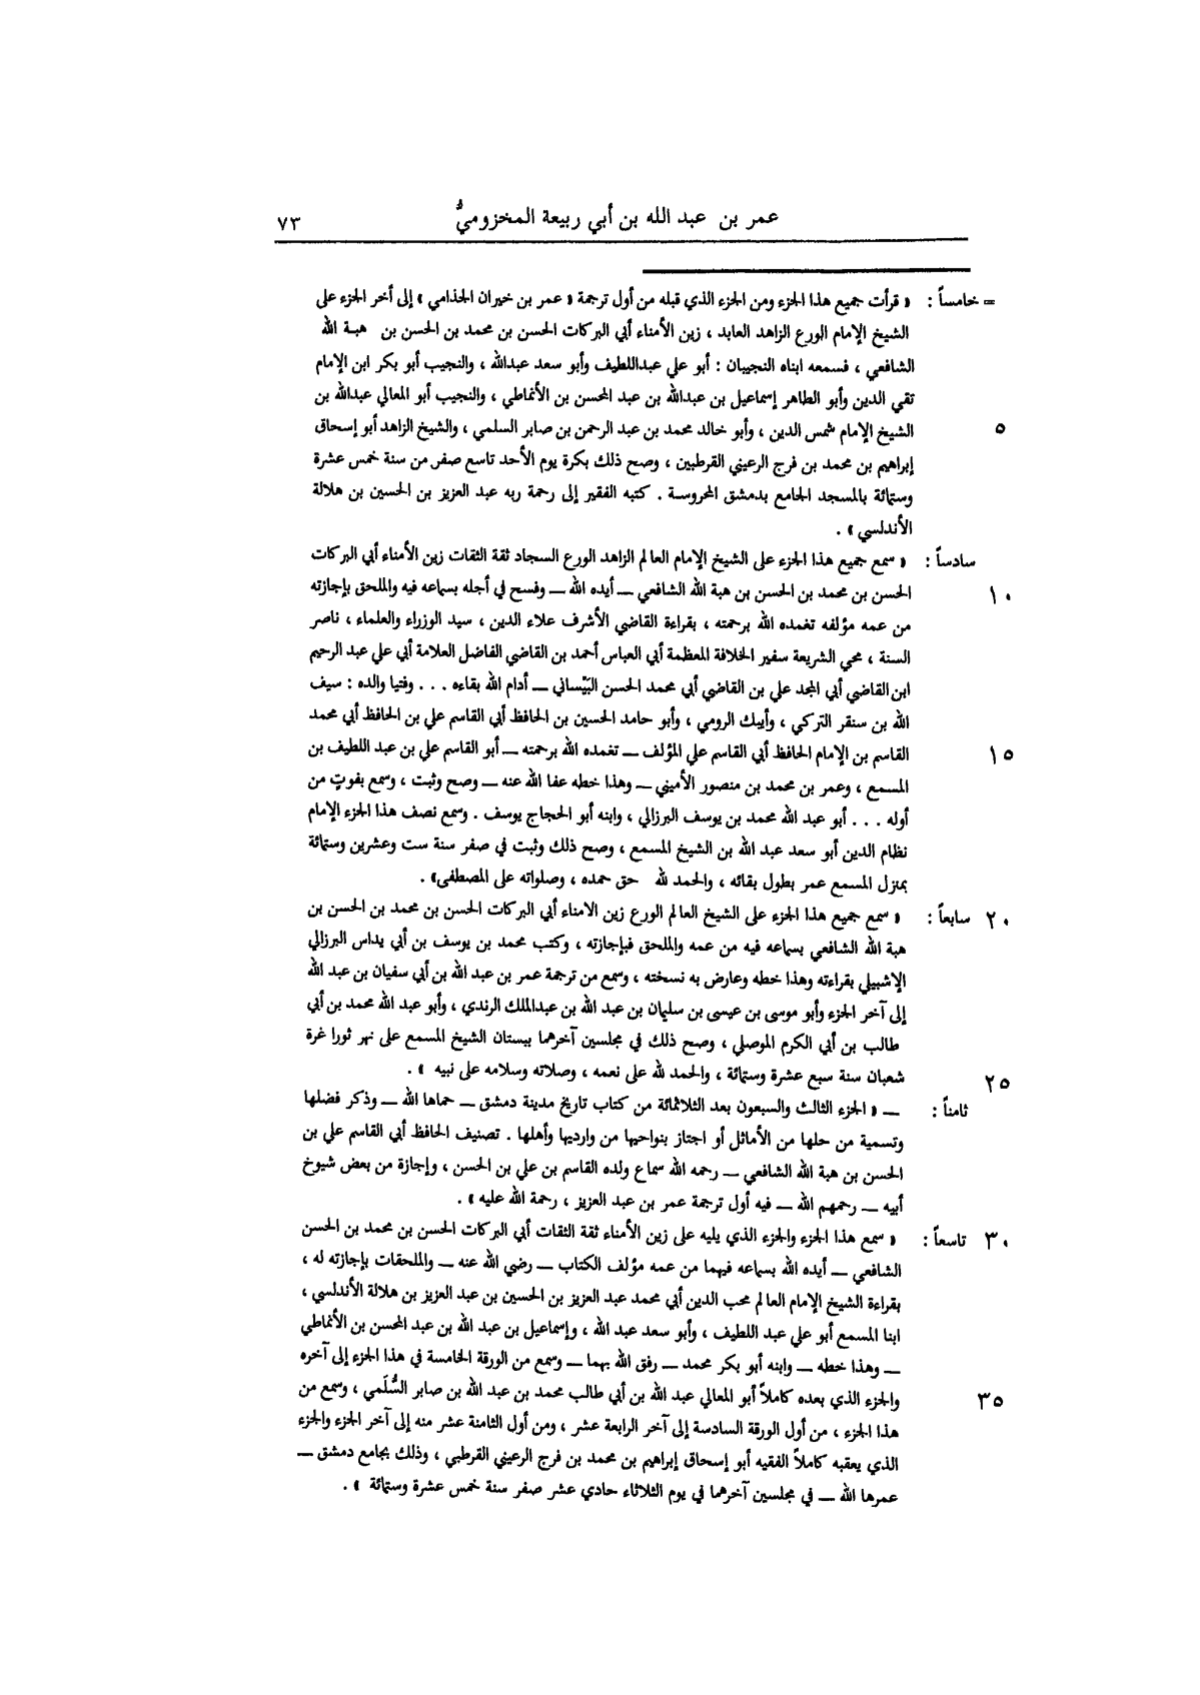 عمر بن عبد الله بن أبي ربيعة المخزوميُّ ٧٣
= خامساً : « قرأت جميع هذا الجزء ومن الجزء الذي قبله من أول ترجمة « عمر بن خيران الجذامي » إلى أخر الجزء على
الشيخ الإمام الورع الزاهد العابد ، زين الأمناء أبي البركات الحسن بن محمد بن الحسن بن هبـة الله
الشافعي ، فسمعه ابناه النجيبان : أبو علي عبداللطيف وأبو سعد عبدالله ، والنجيب أبو بكر ابن الإمام
تقي الدين وأبو الطاهر إسماعيل بن عبدالله بن عبد المحسن بن الأنماطي ، والنجيب أبو المعالي عبدالله بن
الشيخ الإمام شمس الدين ، وأبو خالد محمد بن عبد الرحمن بن صابر السلمي ، والشيخ الزاهد أبو إسحاق ٥
إبراهيم بن محمد بن فرج الرعيني القرطبين ، وصح ذلك بكرة يوم الأحد تاسع صفر من سنة خمس عشرة
وستمائة بالمسجد الجامع بدمشق المحروسة . كتبه الفقير إلى رحمة ربه عبد العزيز بن الحسين بن هلالة
الأندلسي » .
سادساً : « سمع جميع هذا الجزء على الشيخ الإمام العالم الزاهد الورع السجاد ثقة الثقات زين الأمناء أبي البركات
الحسن بن محمد بن الحسن بن هبة الله الشافعي ــ أيده الله ــ وفسح في أجله بسماعه فيه والملحق بإجازته ١٠
من عمه مؤلفه تغمده الله برحمته ، بقراءة القاضي الأشرف علاء الدين ، سيد الوزراء والعلماء ، ناصر
السنة ، محي الشريعة سفير الخلافة المعظمة أبي العباس أحمد بن القاضي الفاضل العلامة أبي علي عبد الرحيم
ابن القاضي أبي المجد علي بن القاضي أبي محمد الحسن البَيْساني ــ أدام الله بقاءه . . . وفتيا والده : سيف
الله بن سنقر التركي ، وأيبك الرومي ، وأبو حامد الحسين بن الحافظ أبي القاسم علي بن الحافظ أبي محمد
القاسم بن الإمام الحافظ أبي القاسم علي المؤلف ــ تغمده الله برحمته ــ أبو القاسم علي بن عبد اللطيف بن ١٥
المسمع ، وعمر بن محمد بن منصور الأميني ــ وهذا خطه عفا الله عنه ــ وصح وثبت ، وسمع بفوتٍ من
أوله . . . أبو عبد الله محمد بن يوسف البرزالي ، وابنه أبو الحجاج يوسف . وسمع نصف هذا الجزء الإمام
نظام الدين أبو سعد عبد الله بن الشيخ المسمع ، وصح ذلك وثبت في صفر سنة ست وعشرين وستمائة
بمنزل المسمع عمر بطول بقائه ، والحمد لله حق حمده ، وصلواته على المصطفى» .
سابعاً : « سمع جميع هذا الجزء على الشيخ العالم الورع زين الامناء أبي البركات الحسن بن محمد بن الحسن بن ٢٠
هبة الله الشافعي بسماعه فيه من عمه والملحق فبإجازته ، وكتب محمد بن يوسف بن أبي يداس البرزالي
الإشبيلي بقراءته وهذا خطه وعارض به نسخته ، وسمع من ترجمة عمر بن عبد الله بن أبي سفيان بن عبد الله
إلى آخر الجزء وأبو موسى بن عيسى بن سليمان بن عبد الله بن عبدالملك الرندي ، وأبو عبد الله محمد بن أبي
طالب بن أبي الكرم الموصلي ، وصح ذلك في مجلسين آخرهما ببستان الشيخ المسمع على نهر ثورا غرة
شعبان سنة سبع عشرة وستمائة ، والحمد لله على نعمه ، وصلاته وسلامه على نبيه » . ٢٥
ثامناً : ــ « الجزء الثالث والسبعون بعد الثلاثمائة من كتاب تاريخ مدينة دمشق ــ حماها الله ــ وذكر فضلها
وتسمية من حلها من الأماثل أو اجتاز بنواحيها من وارديها وأهلها . تصنيف الحافظ أبي القاسم علي بن
الحسن بن هبة الله الشافعي ــ رحمه الله سماع ولده القاسم بن علي بن الحسن ، وإجازة من بعض شيوخ
أبيه ــ رحمهم الله ــ فيه أول ترجمة عمر بن عبد العزيز ، رحمة الله عليه » .
تاسعاً : « سمع هذا الجزء والجزء الذي يليه على زين الأمناء ثقة الثقات أبي البركات الحسن بن محمد بن الحسن ٣٠
الشافعي ــ أيده الله بسماعه فيهما من عمه مؤلف الكتاب ــ رضي الله عنه ــ والملحقات بإجازته له ،
بقراءة الشيخ الإمام العالم محب الدين أبي محمد عبد العزيز بن الحسين بن عبد العزيز بن هلالة الأندلسي ،
ابنا المسمع أبو علي عبد اللطيف ، وأبو سعد عبد الله ، وإسماعيل بن عبد الله بن عبد المحسن بن الأنماطي
ــ وهذا خطه ــ وابنه أبو بكر محمد ــ رفق الله بهما ــ وسمع من الورقة الخامسة في هذا الجزء إلى آخره
والجزء الذي بعده كاملاً أبو المعالي عبد الله بن أبي طالب محمد بن عبد الله بن صابر السُّلَمي ، وسمع من ٣٥
هذا الجزء ، من أول الورقة السادسة إلى آخر الرابعة عشر ، ومن أول الثامنة عشر منه إلى آخر الجزء والجزء
الذي يعقبه كاملاً الفقيه أبو إسحاق إبراهيم بن محمد بن فرج الرعيني القرطبي ، وذلك بجامع دمشق ــ
عمرها الله ــ في مجلسين آخرهما في يوم الثلاثاء حادي عشر صفر سنة خمس عشرة وستمائة » .